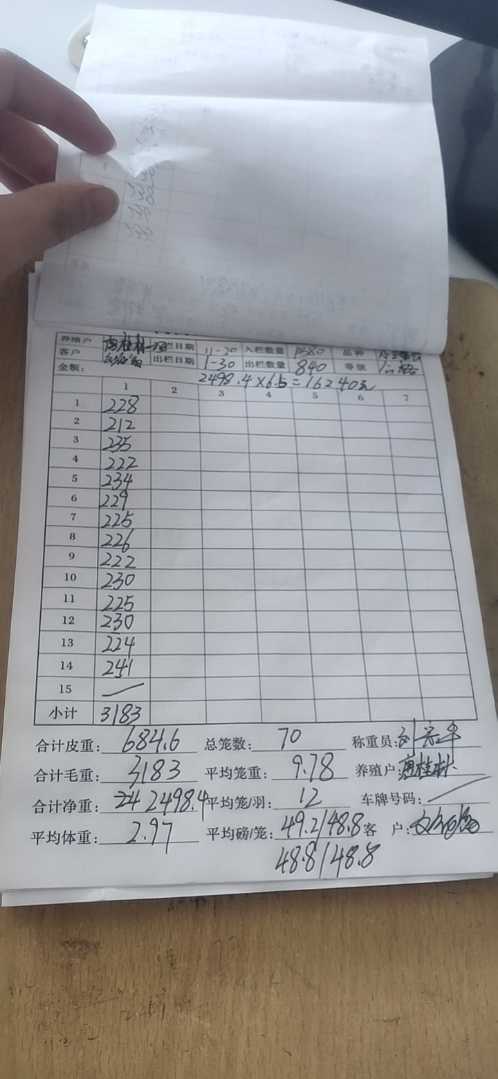 养殖户 唐桂林 栏日期 11-20 入栏数量 品种
客户 出栏日期 1-30 出栏数量 840 等级
金额: 2498.4×6.5=16240元
1 2 3 4 5 6 7
1 228
2 212
3 235
4 222
5 234
6 229
7 225
8 226
9 222
10 230
11 225
12 230
13 224
14 241
15 —
小计 3183
合计皮重: 684.6 总笼数: 70 称重员:
合计毛重: 3183 平均笼重: 9.78 养殖户: 唐桂林
合计净重: 2498.4 平均笼/羽: 12 车牌号码:
平均体重: 2.97 平均磅/笼: 49.2/48.8 客 户:
48.8/48.8